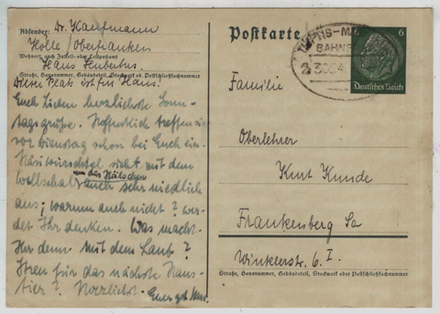 Absender: Dr. Kaufmann
Hölle / Oberfranken
Wohnort, auch Zustell- oder Leitpostamt
Haus
Straße, Hausnummer, Gebäudeteil, Stockwerk od. Postschließfachnummer
Dieser Platz ist für Hans.
Euch Lieben herzlichste Sonn-
tagsgrüße. Hoffentlich treffen sie
vor Dienstag schon bei Euch ein.
sieht mit dem
um das Hälschen
Wollschal auch sehr niedlich
aus; warum auch nicht? wer-
det Ihr denken. Was macht
Ihr denn mit dem
für das nächste Haus-
tier? Herzlichst Euer
Postkarte
BAHNPOST
6 6
Deutsches Reich
Familie
Oberlehrer
Kurt Kunde
Frankenberg Sa
Winklerstr. 6 I.
Straße, Hausnummer, Gebäudeteil, Stockwerk oder Postschließfachnummer